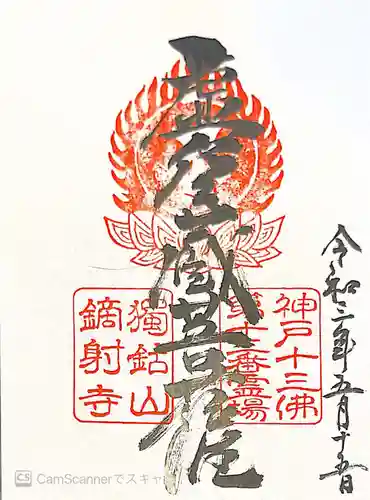 令和二年五月十五日
虚空蔵菩薩
神戸十三佛
第十三番霊場
獨鈷山
鏑射寺
CamScannerでスキャ